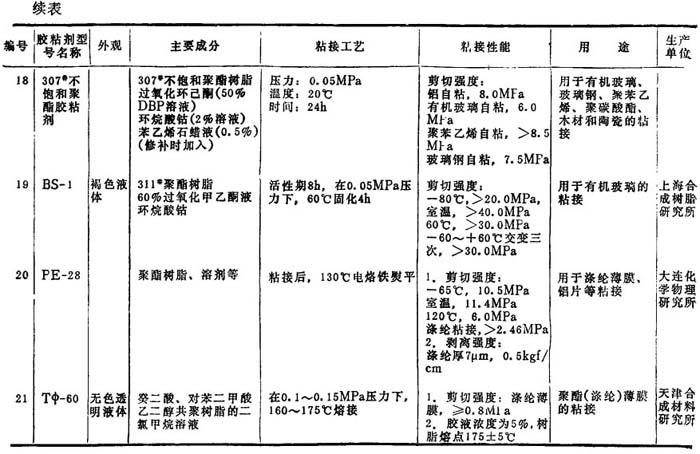 续表
编号 胶粘剂型号名称 外观 主要成分 粘接工艺 粘接性能 用途 生产单位
18
307*不
饱和聚
酯胶粘
剂
307*不饱和聚酯树脂
过氧化环己酮(50%
DBP溶液)
环烷酸钴(2%溶液)
苯乙烯石蜡液(0.5%)
(修补时加入)
压力：0.05MPa
温度：20℃
时间：24h
剪切强度：
铝自粘，8.0MPa
有机玻璃自粘，6.0
MPa
聚苯乙烯自粘，>8.5
MPa
玻璃钢自粘，7.5MPa
用于有机玻璃、
玻璃钢、聚苯乙
烯、聚碳酸酯、
木材和陶瓷的粘
接
19
BS-1
褐色液
体
311*聚酯树脂
60%过氧化甲乙酮液
环烷酸钴
活性期8h，在0.05MPa压
力下，60℃固化4h
剪切强度：
-80℃,>20.0MPa,
室温，>40.0MPa
60℃，>30.0MPa
-60～+60℃交变三
次，>30.0MPa
用于有机玻璃的
粘接
上海合
成树脂
研究所
20
PE-28
聚酯树脂、溶剂等
粘接后，130℃电烙铁熨平
1．剪切强度：
-65℃，10.5MPa
室温，11.4MPa
120℃，6.0MPa
涤纶粘接,>2.46MPa
2．剥离强度：
涤纶厚7μm，0.5kgf/
cm
用于涤纶薄膜、
铝片等粘接
大连化
学物理
研究所
21
TΦ-60
无色透
明液体
癸二酸、对苯二甲酸
乙二醇共聚树脂的二
氯甲烷溶液
在0.1～0.15MPa压力下，
160～175℃熔接
1．剪切强度：涤纶薄
膜，≥0.8MPa
2．胶液浓度为5%,树
脂熔点175±5℃
聚酯(涤纶)薄膜
的粘接
天津合
成材料
研究所